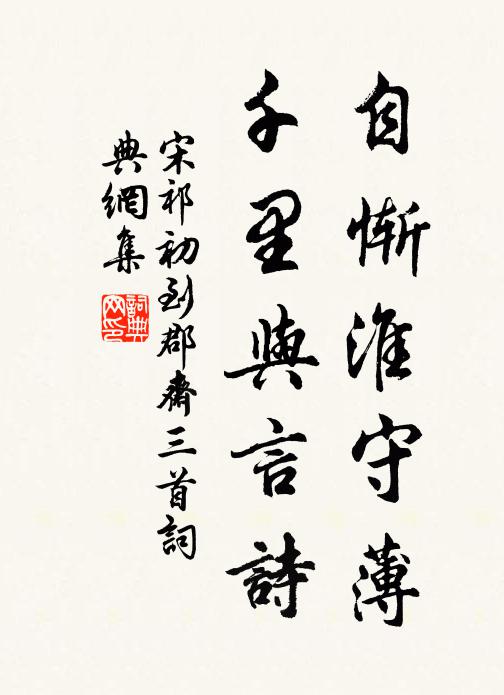 自慚淮守薄
千里與言詩
宋祁初到郡齋三首詞
典網集
詞典
网印